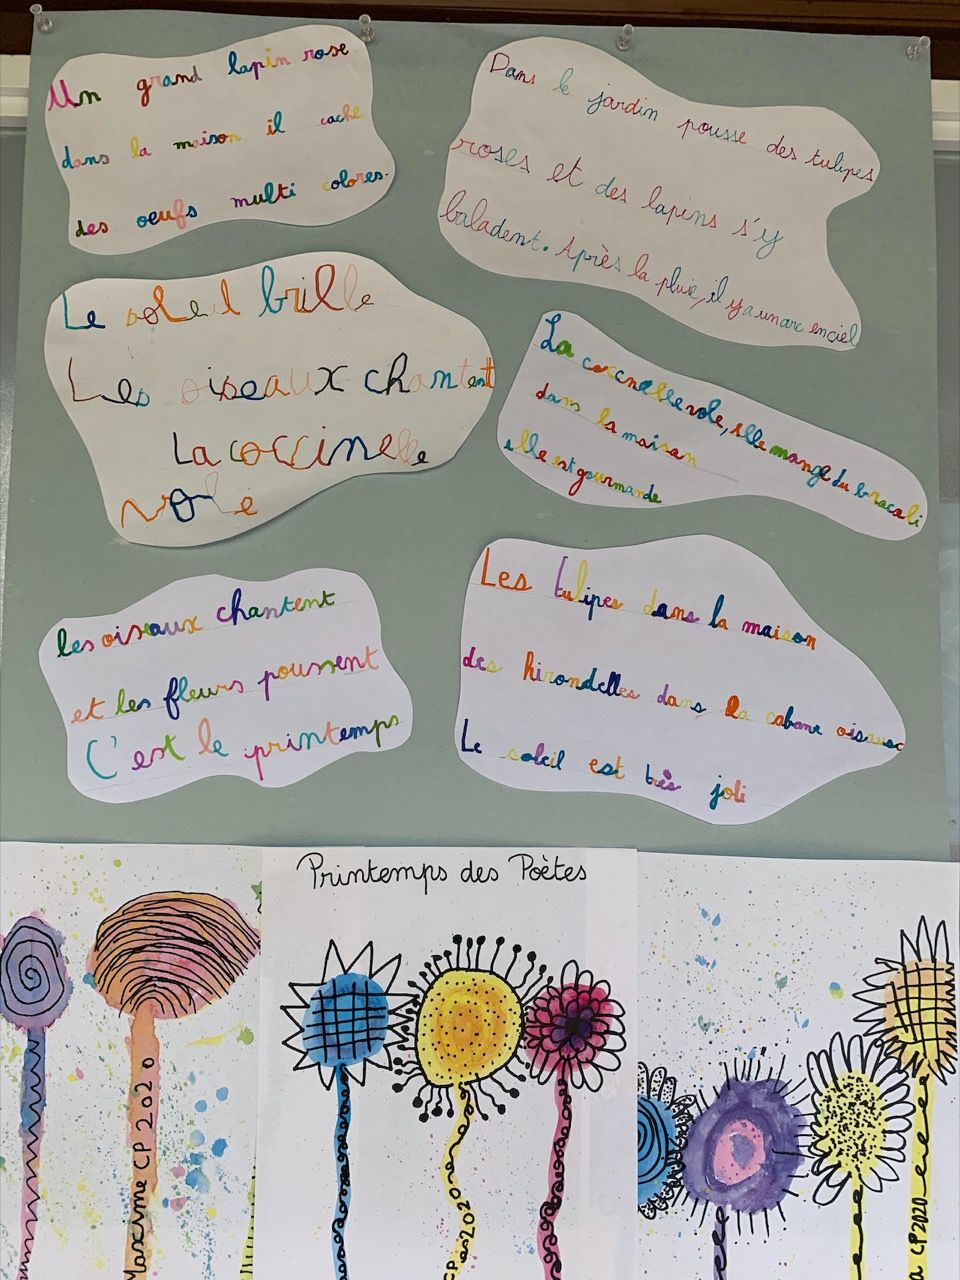 Un grand lapin rose
dans la maison il cache
des oeufs multi colores.
Dans le jardin pousse des tulipes
roses et des lapins s'y
baladent. Après la pluie, il y a un arc en ciel
Le soleil brille
Les oiseaux chantent
La coccinelle
vole
La coccnelle vole, elle mange du bracali
dans la maison
elle est gourmande
les oiseaux chantent
et les fleurs poussent
C'est le printemps
Les tulipes dans la maison
des hirondelles dans la cabane oiseaux
Le soleil est très joli
Printemps des Poètes
Maxime CP 2020
CP 2020
a CP2020